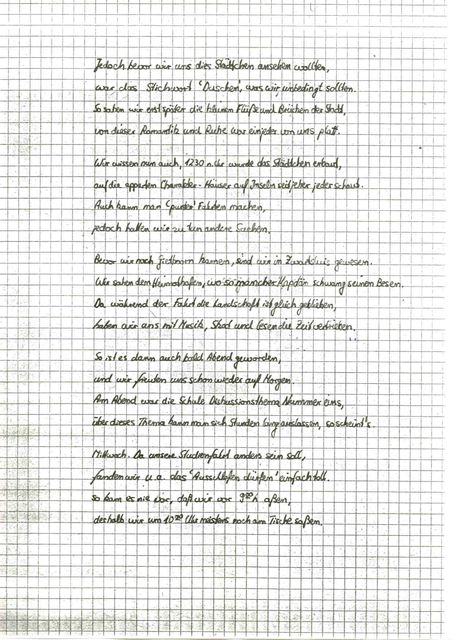 Jedoch bevor wir uns dies Städtchen ansehen wollten,
war das Stichwort 'Duschen', was wir unbedingt sollten.
So sahen wir erst später die kleinen Flüße und Brücken der Stadt,
von dieser Romantik und Ruhe war einjeder von uns platt.
Wir wissen nun auch, 1230 n. Chr wurde das Städtchen erbaut,
auf die aparten Charakter-Häuser auf Inseln seitjeher jeder schaut.
Auch kann man 'punter' Fahrten machen,
jedoch hatten wir zu tun andere Sachen.
Bevor wir nach Giethorn kamen, sind wir in Zwartsluis gewesen.
Wir sahen den Heimathafen, wo so mancher Kapitän schwang seinen Besen.
Da während der Fahrt die Landschaft ist gleich geblieben,
haben wir uns mit Musik, Skat und Lesen die Zeit vertrieben.
So ist es dann auch bald Abend geworden,
und wir freuten uns schon wieder auf Morgen.
Am Abend war die Schule Diskussionsthema Nummer eins,
über dieses Thema kann man sich Stunden lang auslassen, so scheint's.
Mittwoch. Da unsere Studienfahrt anders sein soll,
fanden wir u.a. das 'Ausschlafen dürfen' einfach toll.
so kam es nie vor, daß wir vor 9⁰⁰h aßen,
deshalb wir um 10³⁰ Uhr meistens noch am Tische saßen.